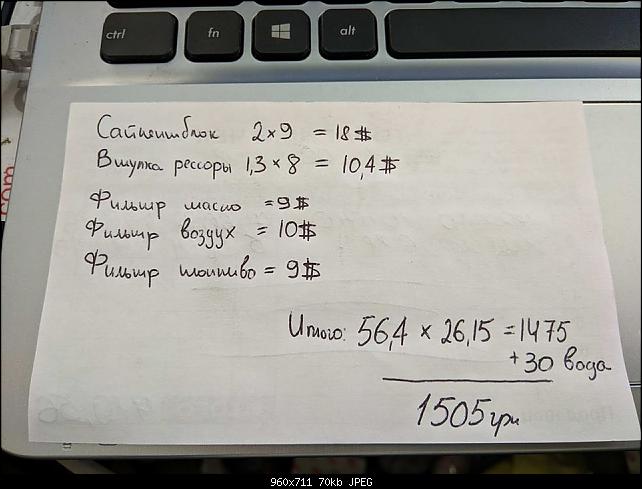 ctrl fn alt
Сайлентблок 2×9 = 18$
Втулка рессоры 1,3×8 = 10,4$
Фильтр масло =9$
Фильтр воздух = 10$
Фильтр топливо = 9$
Итого: 56,4 × 26,15 =1475
+30 вода
1505грн
com
960x711 70kb JPEG